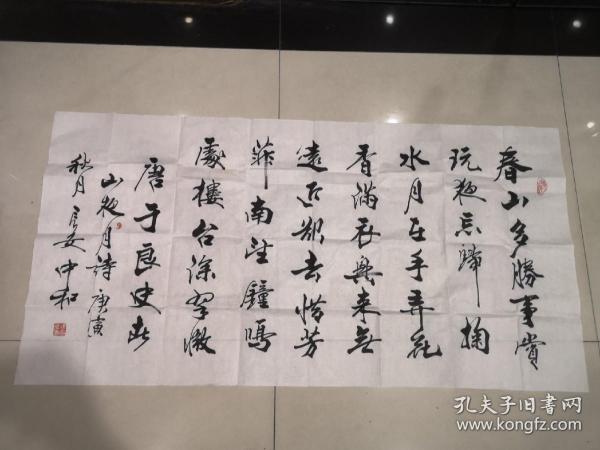 春山多勝事賞
玩夜忘歸掬
水月在手弄花
香滿衣興來無
遠近欲去惜芳
菲南望鐘鳴
處樓台深翠微
唐于良史春
山夜月詩庚寅
秋月長安中和
孔夫子旧书网
www.kongfz.com